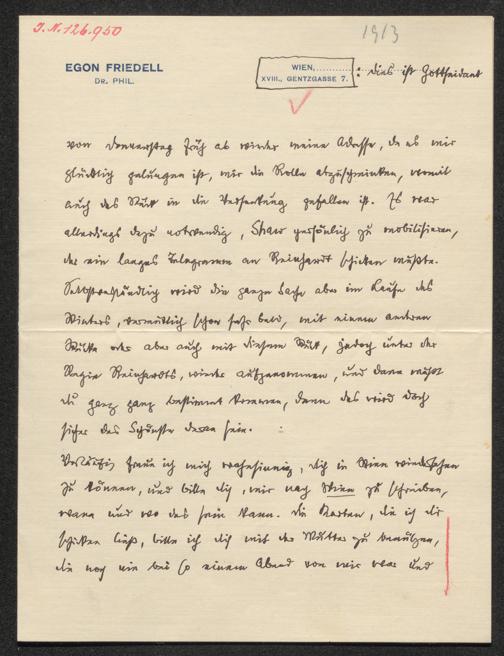 J.N. 126.950
1913
EGON FRIEDELL
DR. PHIL.
WIEN,
XVIII., GENTZGASSE 7.
: dies ist Gottseidank
von Donnerstag früh ab wieder meine Adresse, da es mir
glücklich gelungen ist, mir die Rolle abzuschminken, womit
auch das Stück in die Versenkung gefallen ist. Es war
allerdings dazu notwendig, Shaw persönlich zu mobilisieren,
der ein langes Telegramm an Reinhardt schicken musste.
Selbstverständlich wird die ganze Sache aber im Laufe des
Winters, vermutlich schon sehr bald, mit einem anderen
Stücke oder aber auch mit diesem Stück, jedoch unter der
Regie Reinhardts, wieder aufgenommen, und dann musst
du ganz ganz bestimmt kommen, denn das wird doch
sicher das Schönste daran sein.
Vorläufig freue ich mich wahnsinnig, dich in Wien wiedersehen
zu können, und bitte dich, mir nach Wien zu schreiben,
wann und wo das sein kann. Die Karten, die ich dir
schicken liess, bitte ich dich mit der Mutter zu benützen,
die noch nie bei so einem Abend von mir war und